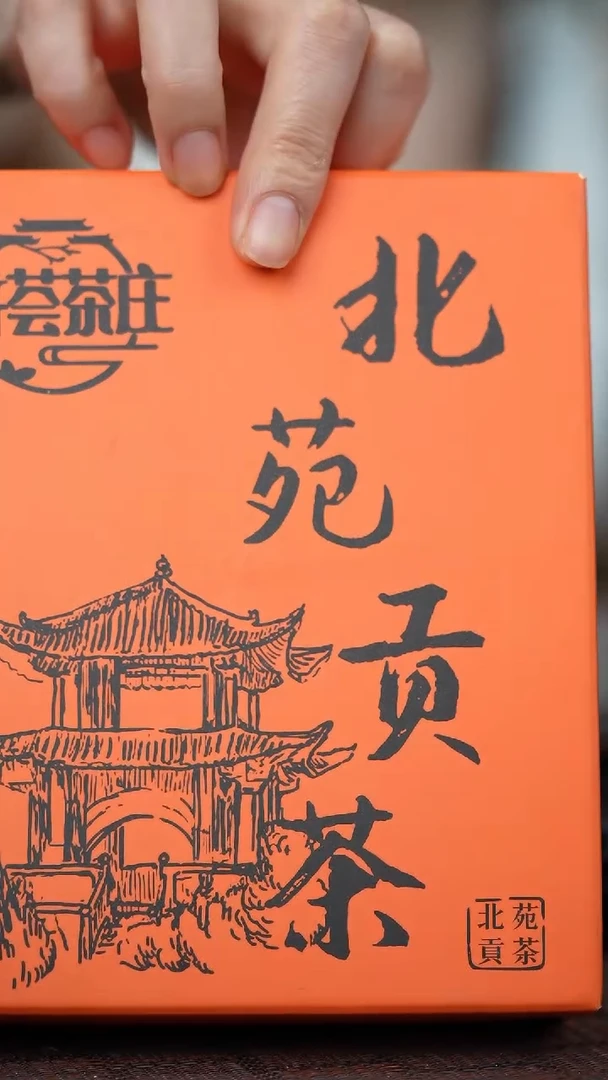 荟茶庄
北苑贡茶
北苑
貢茶